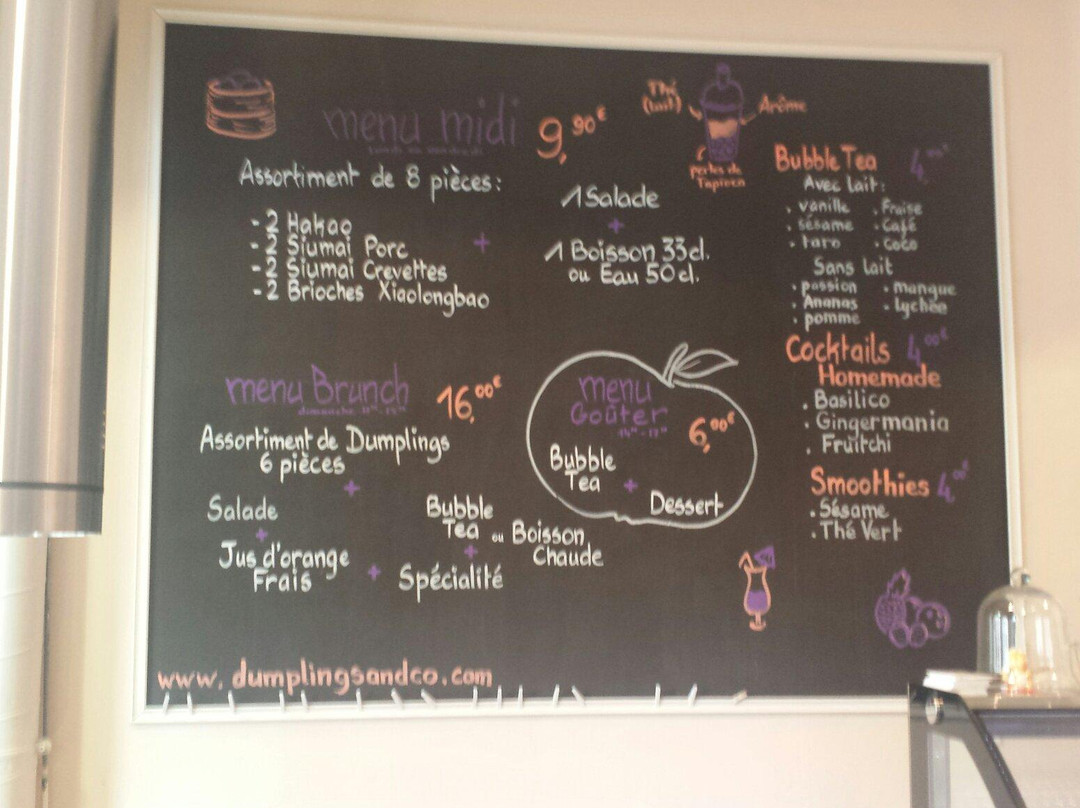 menu midi 9,90€
Assortiment de 8 pièces:
- 2 Hakao
- 2 Siumai Porc
- 2 Siumai Crevettes
- 2 Brioches Xiaolongbao
+
1 Salade
+
1 Boisson 33cl.
ou Eau 50cl.
Thé
(lait)
Arôme
perles de
Tapioca
Bubble Tea 4,00€
Avec lait:
. vanille . Fraise
. sésame . Café
. taro . coco
Sans lait
. passion . mangue
. Ananas . lychée
. pomme
Cocktails 4,00€
Homemade
. Basilico
. Gingermania
. Fruitchi
Smoothies 4,00€
. Sésame
. Thé Vert
menu Brunch 16,00€
Assortiment de Dumplings
6 pièces
+
Salade
+
Jus d'orange
Frais
+
Bubble
Tea ou Boisson
Chaude
+
Spécialité
menu
Goûter
6,00€
Bubble
Tea + Dessert
www.dumplingsandco.com